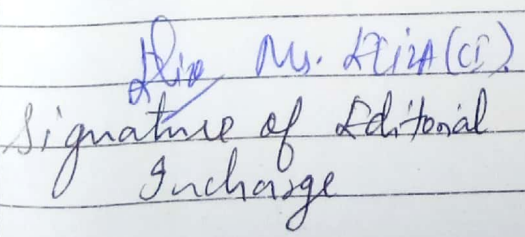 Ms. ALIZA (CI)
Signature of Editorial
Incharge